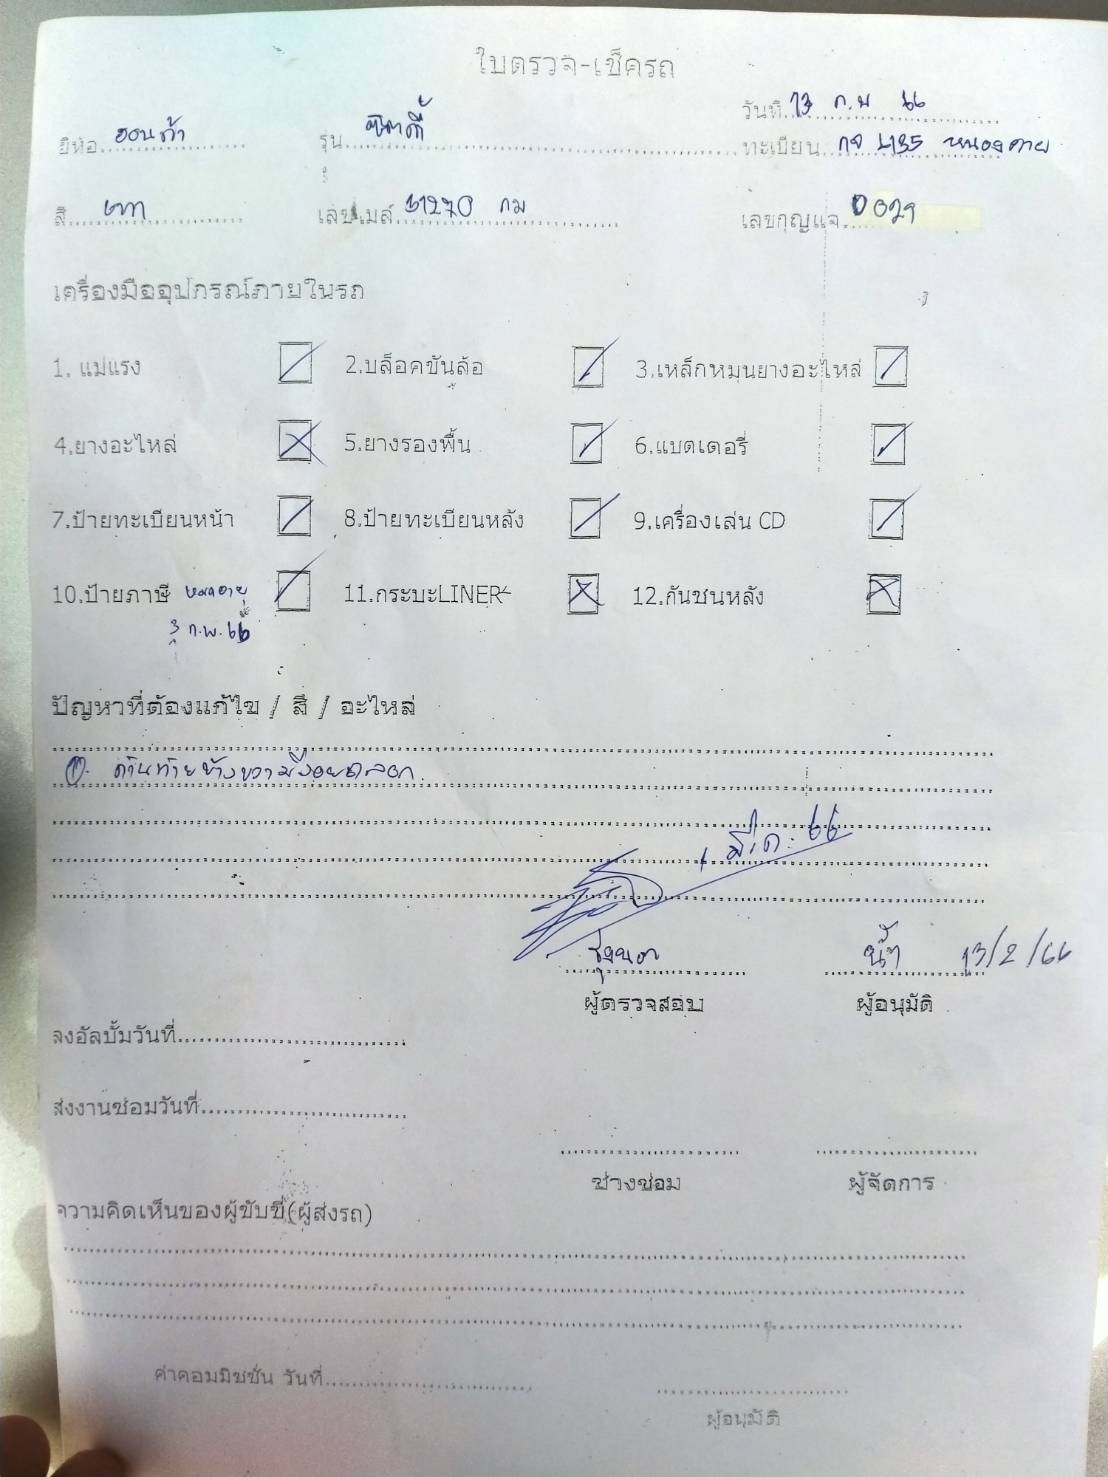 ใบตรวจ-เช็ครถ
วันที่ 13 ก.พ 66
ยี่ห้อ ฮอนด้า รุ่น ซิตตี้ ทะเบียน กจ 4135 หนองคาย
สี เทา เลขไมล์ 61270 กม เลขกุญแจ 0029
เครื่องมืออุปกรณ์ภายในรถ
1. แม่แรง 2.บล็อคขันล้อ 3.เหล็กหมุนยางอะไหล่
4.ยางอะไหล่ 5.ยางรองพื้น 6.แบตเตอรี่
7.ป้ายทะเบียนหน้า 8.ป้ายทะเบียนหลัง 9.เครื่องเล่น CD
10.ป้ายภาษี หมดอายุ 11.กระบะLINER 12.กันชนหลัง
3 ก.พ. 66
ปัญหาที่ต้องแก้ไข / สี / อะไหล่
1. ด้านท้ายข้างขวามีรอยถลอก
66
น้ำ 13/2/66
ผู้ตรวจสอบ ผู้อนุมัติ
ลงอัลบั้มวันที่
ส่งงานซ่อมวันที่
ช่างซ่อม ผู้จัดการ
ความคิดเห็นของผู้ขับขี่(ผู้ส่งรถ)
ค่าคอมมิชชั่น วันที่
ผู้อนุมัติ